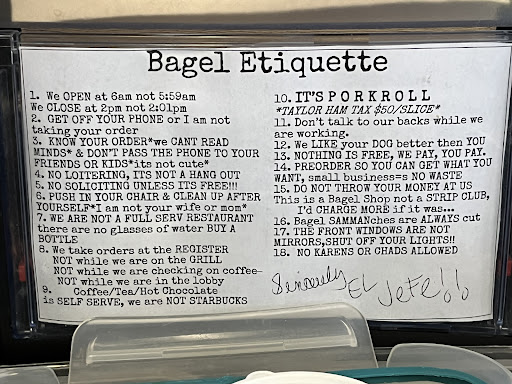 Bagel Etiquette
1. We OPEN at 6am not 5:59am
We CLOSE at 2pm not 2:01pm
2. GET OFF YOUR PHONE or I am not
taking your order
3. KNOW YOUR ORDER*we CANT READ
MINDS* & DON'T PASS THE PHONE TO YOUR
FRIENDS OR KIDS*its not cute*
4. NO LOITERING, ITS NOT A HANG OUT
5. NO SOLICITING UNLESS ITS FREE!!!
6. PUSH IN YOUR CHAIR & CLEAN UP AFTER
YOURSELF*I am not your wife or mom*
7. WE ARE NOT A FULL SERV RESTAURANT
there are no glasses of water BUY A
BOTTLE
8. We take orders at the REGISTER
NOT while we are on the GRILL
NOT while we are checking on coffee-
NOT while we are in the lobby
9. Coffee/Tea/Hot Chocolate
is SELF SERVE, we are NOT STARBUCKS
10. IT'S PORKROLL
*TAYLOR HAM TAX $50/SLICE*
11. Don't talk to our backs while we
are working.
12. We LIKE your DOG better then YOU
13. NOTHING IS FREE, WE PAY, YOU PAY.
14. PREORDER SO YOU CAN GET WHAT YOU
WANT, small business=s NO WASTE
15. DO NOT THROW YOUR MONEY AT US
This is a Bagel Shop not a STRIP CLUB,
I'd CHARGE MORE if it was...
16. Bagel SAMMANches are ALWAYS cut
17. THE FRONT WINDOWS ARE NOT
MIRRORS,SHUT OFF YOUR LIGHTS!!
18. NO KARENS OR CHADS ALLOWED
Sincerely EL JeFe!!